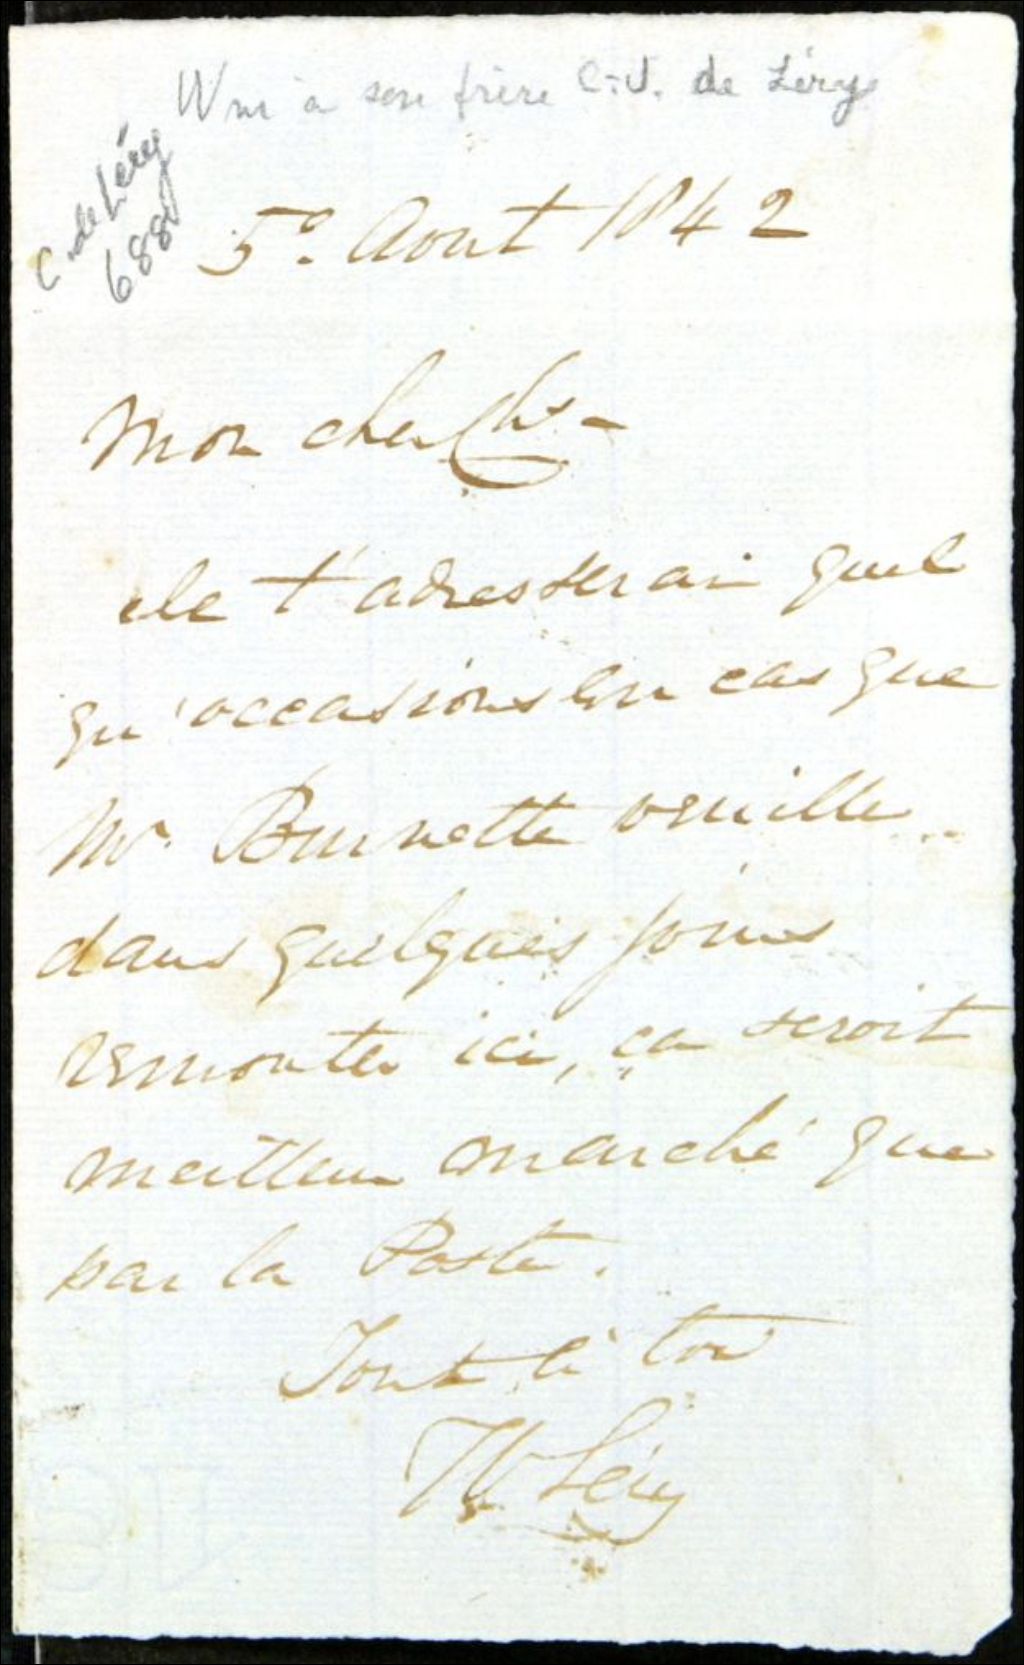 Wm à son frère C.-J. de Léry
C. de Léry
688
5e. Aout 1842
Mon cher Chs -
Je t'adresserai quel
qu'occasions en cas que
Mr. Burnette veuille
dans quelques jours
remonter ici, ça seroit
meilleur marché que
par la Poste.
Tout à toi
W Léry